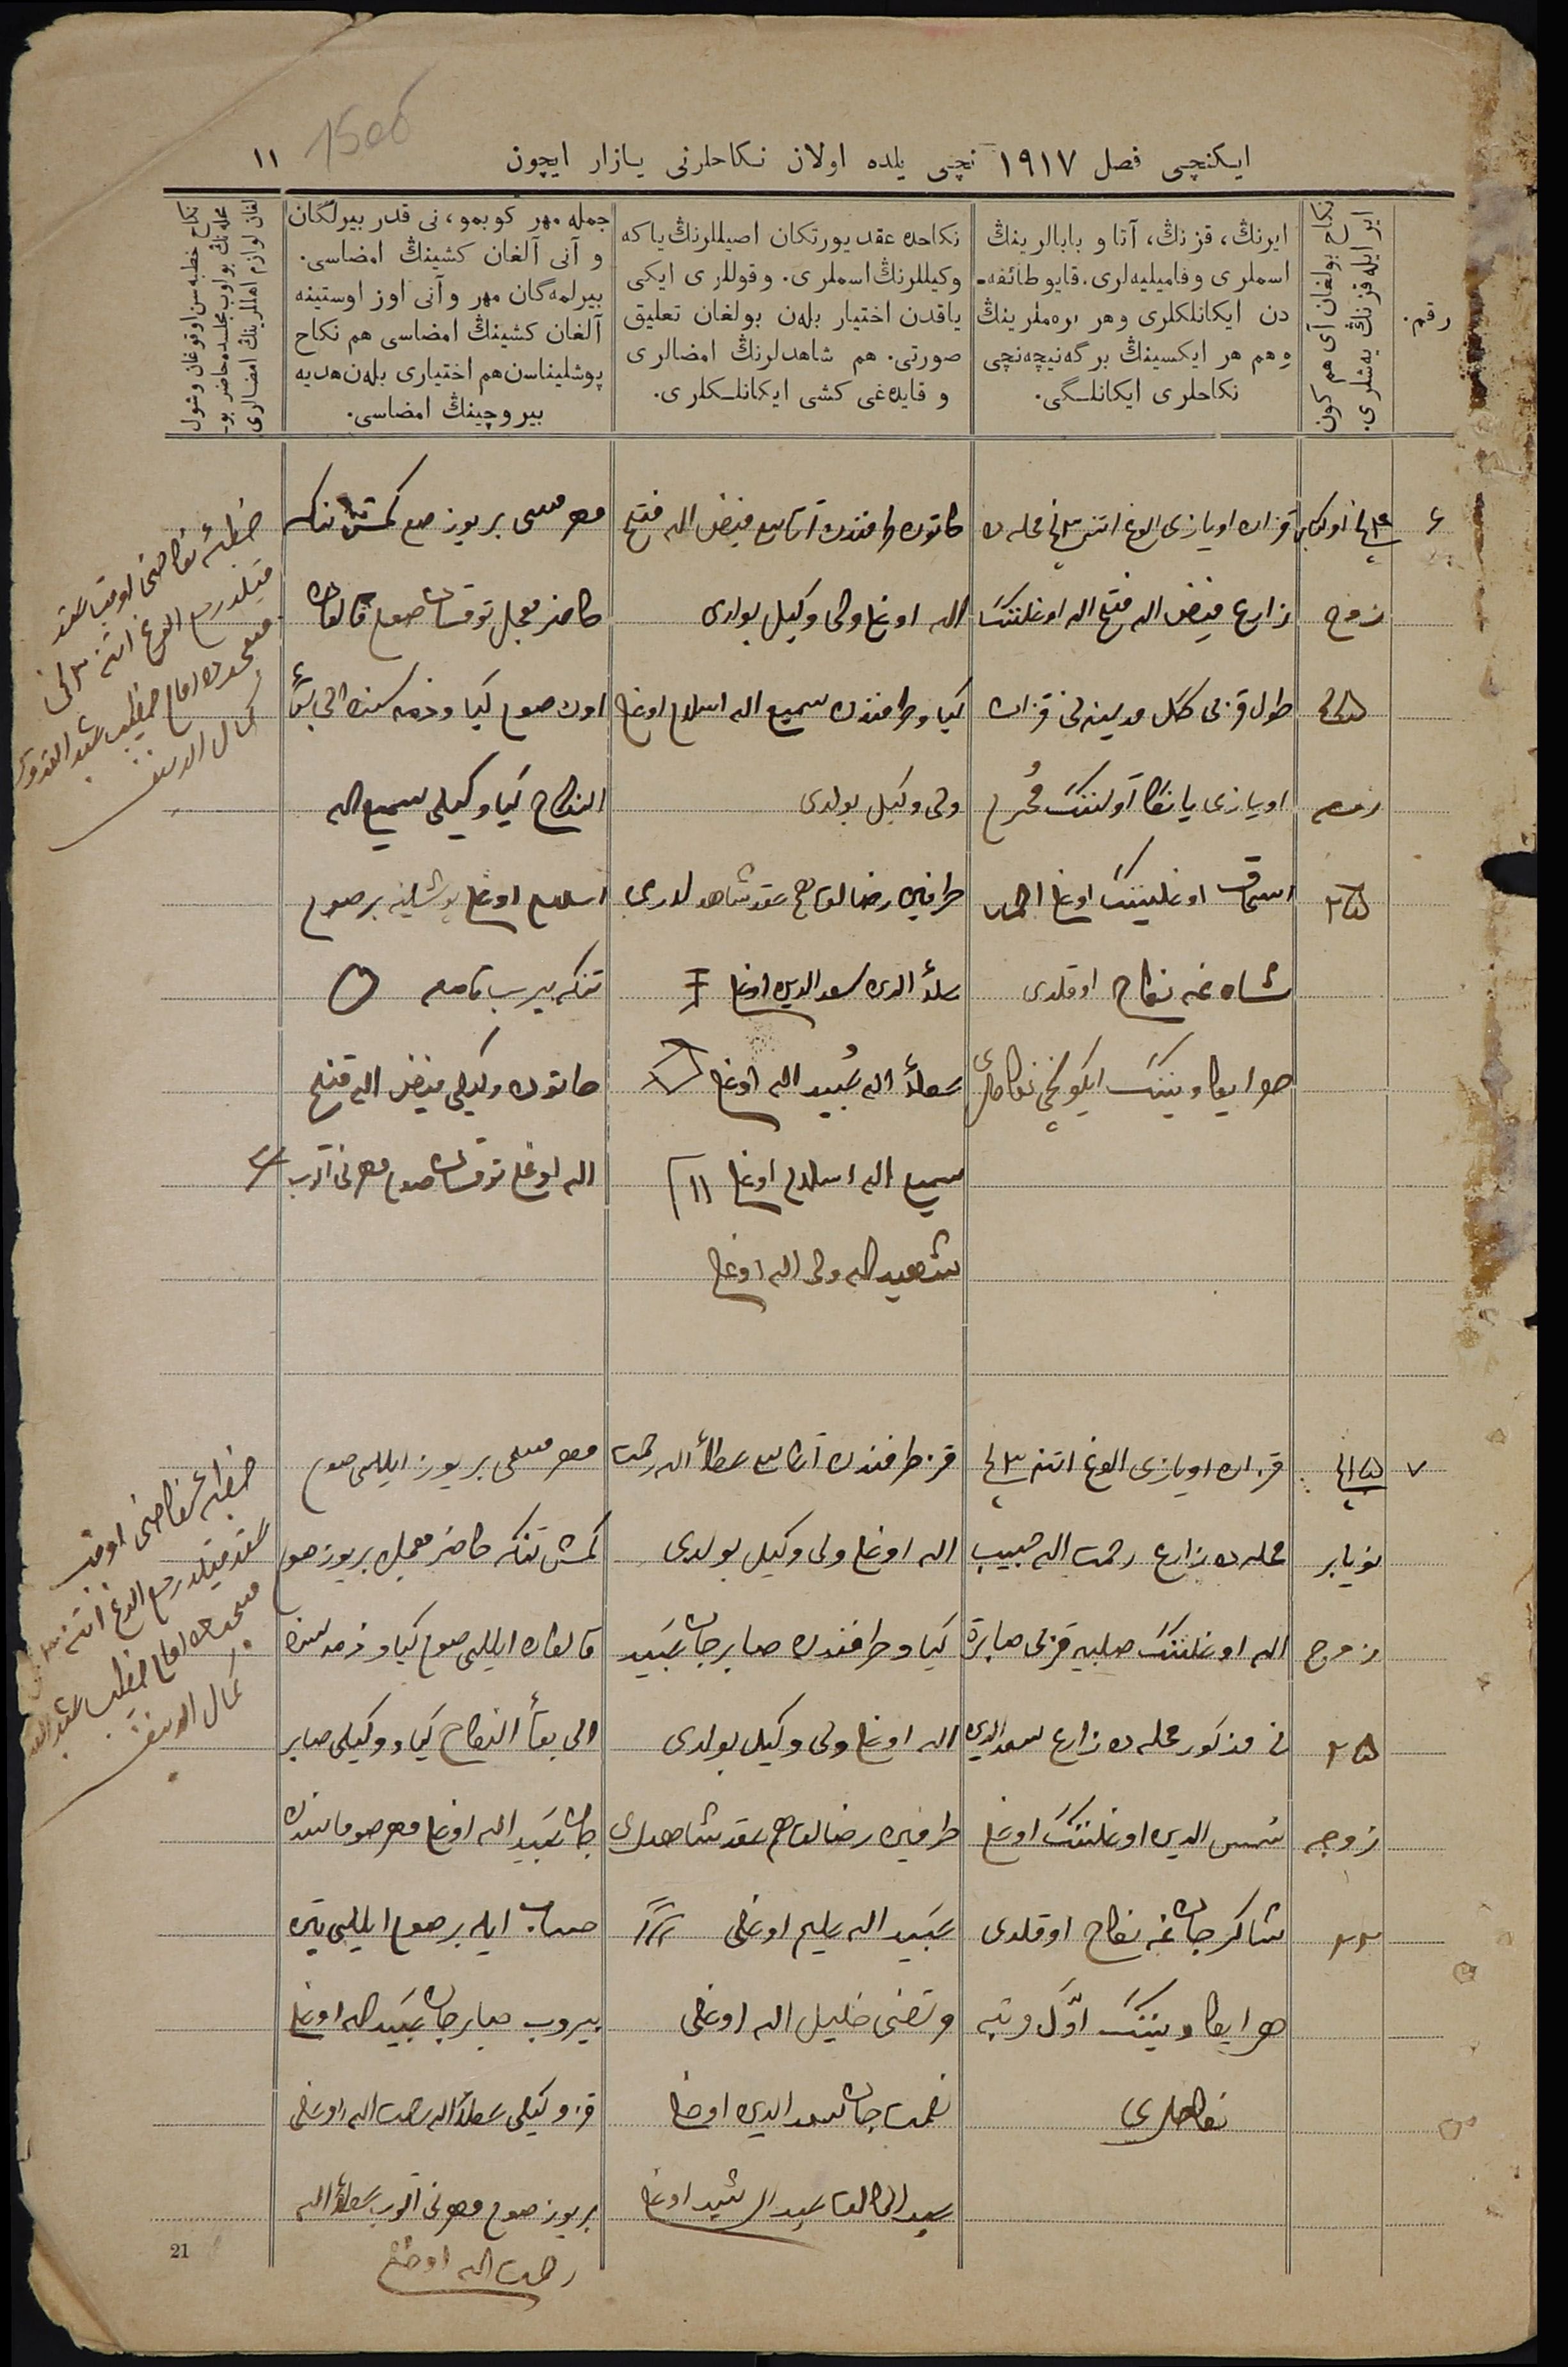 150об
ایکنچی فصل ۱۹۱۷ نچی یلده اولان نکاحلرنی یازار ایچون
۱۱
رقم.
نکاح بولغان آی هم کون
ایر ایله قزنڭ یه‌شلری.
ایرنڭ، قزنڭ، آتا و بابالرینڭ
اسملری و فامیلیه‌لری. قایو طائفه‌-
دن ایکانلکلری وهر بره‌ملرینڭ
وهم هر ایکسینڭ برگه‌نیچه‌نچی
نکاحلری ایکانلـگی.
نکاحده عقد یورتکان اصیللرنڭ یا که
وکیللرنڭ اسملری. و قوللری ایکی
یاقدن اختیار بله‌ن بولغان تعلیق
صورتی. هم شاهدلرنڭ امضالری
و قایده‌غی کشی ایکانلـکلری.
جمله مهر کوبمو، نی قدر بیرلگان
و آنی آلغان کشینڭ امضاسی.
بیرلمه‌گان مهر و آنی اوز اوستینه
آلغان کشینڭ امضاسی هم نکاح
پوشلیناسن هم اختیاری بله‌ن هدیه
بیروچینڭ امضاسی.
نکاح خطبه‌سن اوقوغان وشول
محله‌نڭ بولوب مجلسده حاضر بو-
لغان لوازم اهللرینڭ امضالری
۶
زوج
۲۵
قزان اویازی الوغ اتنه ۳ نچی محله ده
زارع فیض الله فتح الله اوغلننڭ
اویازی
اسحاق اوغلیننڭ اوغلی احمد
شاه غه نکاح اوقلدی
هر ایکاوسیننڭ ایکونچی نکاحلری
خاتون طرفندن آتاسی فیض الله فتح
الله اوغلی ولی وکیل بولدی
کیاو طرفندن سمیع الله اسلام اوغلی
ولی وکیل بولدی
طرفین رضالقاهم عقد شاهدلری
سعد الدین اوغلی
عطاء الله عُبید الله اوغلی
سمیع الله اسلام اوغلی
شهید الله ولی الله اوغلی
مهر مسمی بر یوز صوم کمش تنکه
حاضر معجل توقسان صوم قالغان
اون صوم کیاو ذمه سنده الی بقاء
النکاح کیاو وکیلی سمیع الله
اسلام اوغلی پوشلینه بر صوم
تنکه بیرب
خاتون وکیلی فیض الله فتح
الله اوغلی توقسان صوم مهرنی آلوب
خطبهٔ نکاحنی اوقب عقد
قیلدردم الوغ اتنه ۳ نچی
محله ده امام خطیب عبد القدوس
کمال الدینف
۷
۱۵ نچی
نویابر
زوج
۲۵
زوجه
۲۲
قزان اویازی الوغ اتنه ۳ نچی
محله ده زارع رحمت الله حبیب
الله اوغلننڭ صلبیه قزی صابرة
نی مذکور محله ده زارع سعد الدین
شمس الدین اوغلننڭ اوغلی
شاکرجان غه نکاح اوقلدی
هر ایکاوسیننڭ اوّل مرتبه
نکاحلری
قز طرفندن آتاسی عطاء الله رحمت
الله اوغلی ولی وکیل بولدی
کیاو طرفندن صابرجان عبید
الله اوغلی ولی وکیل بولدی
طرفین رضالقاهم عقد شاهدلری
عبید الله سلیم اوغلی
مرتضی خلیل الله اوغلی
نعمت جان سعد الدین اوغلی
عبد الخالق عبد الرشید اوغلی
مهر مسمی بر یوز ایللی صوم
کمش تنکه حاضر معجل بر یوز صوم
قالغان ایللی صوم کیاو ذمه سنده
الی بقاء النکاح کیاو وکیلی صابر
جان عبید الله اوغلی
حساب ایله بر صوم ایللی تین
بیروب صابرجان عبید الله اوغلی
قز وکیلی عطاء الله رحمت الله اوغلی
بر یوز صوم مهرنی آلوب عطاء الله
رحمت الله اوغلی
خطبهٔ نکاحنی اوقب
عقد قیلدردم الوغ اتنه ۳ نچی
محله ده امام خطیب عبد القدوس
کمال الدینف
21